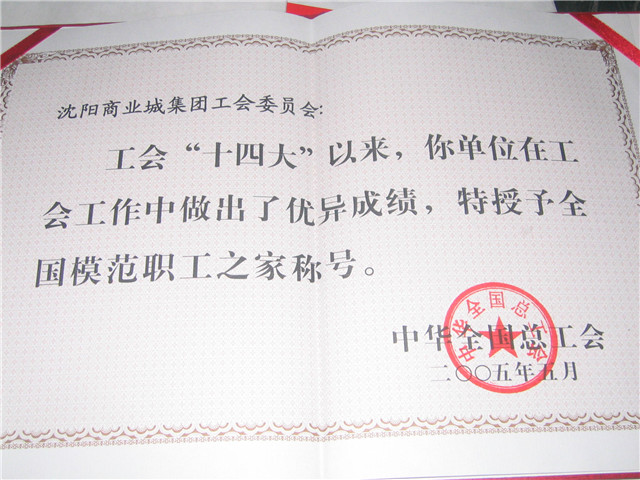 沈阳商业城集团工会委员会:
工会“十四大”以来，你单位在工
会工作中做出了优异成绩，特授予全
国模范职工之家称号。
中华全国总工会
二〇〇五年五月
中华全国总工会